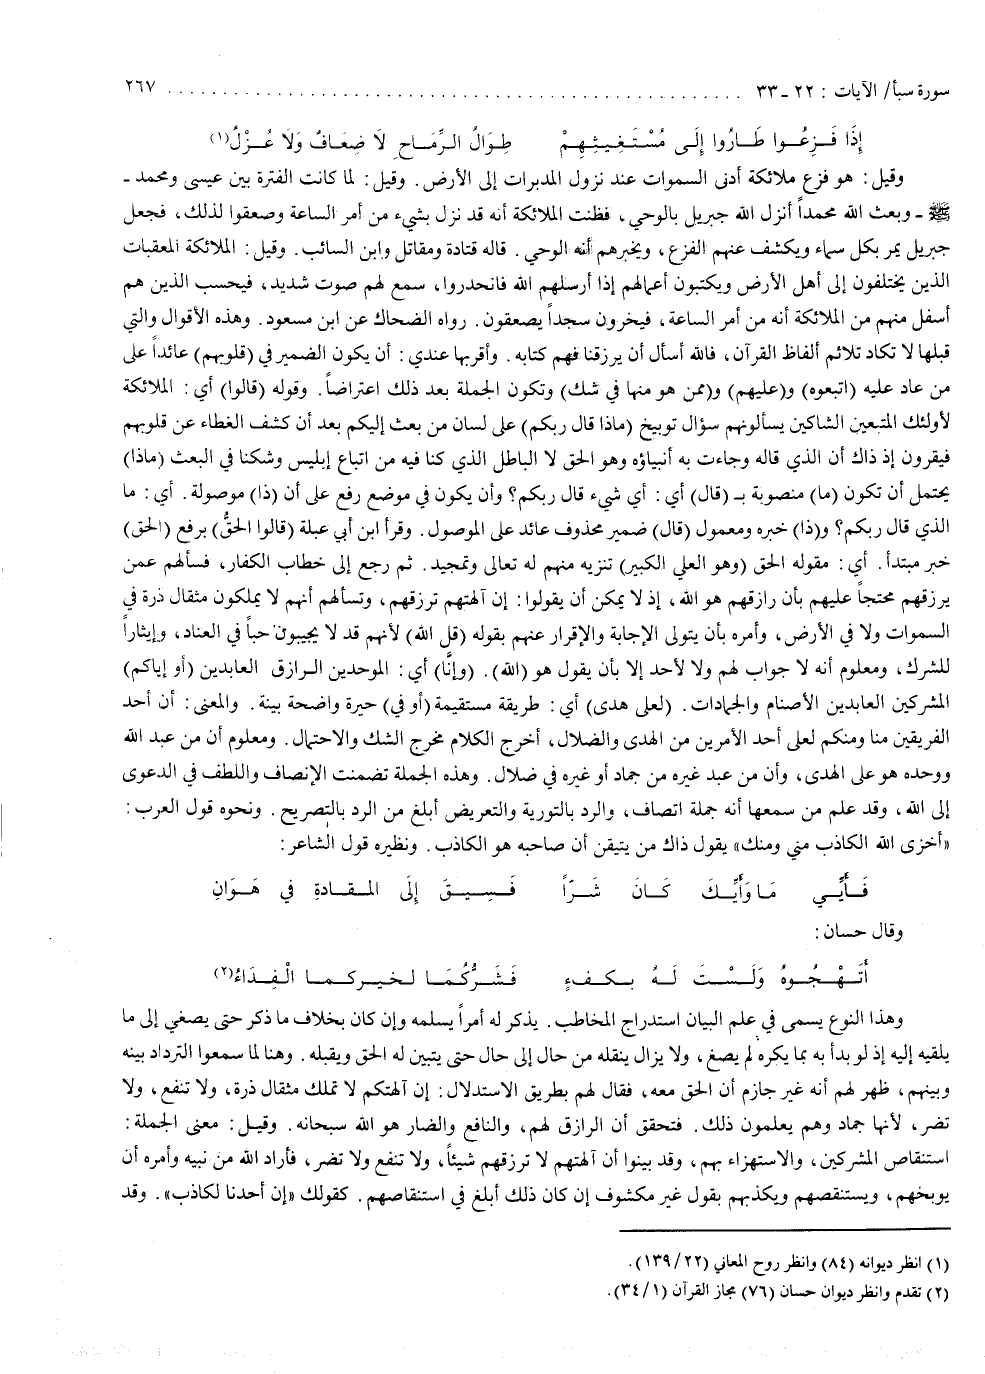 سورة سبأ/ الآيات : ٢٢ ـ ٣٣ . . . . . . . . . . . . . . . . . . . . . . . . . . . . . . . . . . . . . . . . . . . . . . . . . . . . ٢٦٧
إِذَا فَـزِعُـوا طَـارُوا إِلَـى مُسْتَـغِيـثِـهِـمْ طِـوَالُ الـرِّمَـاحِ لَا ضِعَـافٌ وَلَا عُـزْلُ(١)
وقيل : هو فزع ملائكة أدنى السموات عند نزول المدبرات إلى الأرض. وقيل : لما كانت الفترة بين عيسى ومحمد ـ
ﷺ ـ وبعث الله محمداً أنزل الله جبريل بالوحي، فظنت الملائكة أنه قد نزل بشيء من أمر الساعة وصعقوا لذلك، فجعل
جبريل يمر بكل سماء ويكشف عنهم الفزع، ويخبرهم أنه الوحي. قاله قتادة ومقاتل وابن السائب. وقيل : الملائكة المعقبات
الذين يختلفون إلى أهل الأرض ويكتبون أعمالهم إذا أرسلهم الله فانحدروا، سمع لهم صوت شديد، فيحسب الذين هم
أسفل منهم من الملائكة أنه من أمر الساعة، فيخرون سجداً يصعقون. رواه الضحاك عن ابن مسعود. وهذه الأقوال والتي
قبلها لا تكاد تلائم ألفاظ القرآن، فالله أسأل أن يرزقنا فهم كتابه. وأقربها عندي : أن يكون الضمير في (قلوبهم) عائداً على
من عاد عليه (اتبعوه) و(عليهم) و(ممن هو منها في شك) وتكون الجملة بعد ذلك اعتراضاً. وقوله (قالوا) أي : الملائكة
لأولئك المتبعين الشاكين يسألونهم سؤال توبيخ (ماذا قال ربكم) على لسان من بعث إليكم بعد أن كشف الغطاء عن قلوبهم
فيقرون إذ ذاك أن الذي قاله وجاءت به أنبياؤه وهو الحق لا الباطل الذي كنا فيه من اتباع إبليس وشكنا في البعث (ماذا)
يحتمل أن تكون (ما) منصوبة بـ (قال) أي : أي شيء قال ربكم؟ وأن يكون في موضع رفع على أن (ذا) موصولة. أي : ما
الذي قال ربكم؟ و(ذا) خبره ومعمول (قال) ضمير محذوف عائد على الموصول. وقرأ ابن أبي عبلة (قالوا الحقُّ) برفع (الحق)
خبر مبتدأ. أي : مقوله الحق (وهو العلي الكبير) تنزيه منهم له تعالى وتمجيد. ثم رجع إلى خطاب الكفار، فسألهم عمن
يرزقهم محتجاً عليهم بأن رازقهم هو الله، إذ لا يمكن أن يقولوا : إن آلهتهم ترزقهم، وتسألهم أنهم لا يملكون مثقال ذرة في
السموات ولا في الأرض، وأمره بأن يتولى الإجابة والإقرار عنهم بقوله (قل الله) لأنهم قد لا يجيبون حباً في العناد، وإيثاراً
للشرك، ومعلوم أنه لا جواب لهم ولا لأحد إلا بأن يقول هو (الله). (وإنَّا) أي : الموحدين الـرازق العابدين (أو إياكم)
المشركين العابدين الأصنام والجمادات. (لعلى هدى) أي : طريقة مستقيمة (أو في) حيرة واضحة بينة. والمعنى : أن أحد
الفريقين منا ومنكم لعلى أحد الأمرين من الهدى والضلال، أخرج الكلام مخرج الشك والاحتمال. ومعلوم أن من عبد الله
ووحده هو على الهدى، وأن من عبد غيره من جماد أو غيره في ضلال. وهذه الجملة تضمنت الإنصاف واللطف في الدعوى
إلى الله، وقد علم من سمعها أنه جملة اتصاف، والرد بالتورية والتعريض أبلغ من الرد بالتصريح. ونحوه قول العرب :
«أخزى الله الكاذب مني ومنك» يقول ذاك من يتيقن أن صاحبه هو الكاذب. ونظيره قول الشاعر :
فَـأَيِّـي مَـا وَأَيُّـكَ كَـانَ شَـرّاً فَـسِيـقَ إِلَى المـقـادةِ في هَـوَانِ
وقال حسان :
أَتَـهْـجُـوهُ وَلَـسْـتَ لَـهُ بِـكـفءٍ فَـشَـرُّكُـمَـا لـخيـركـمـا الْـفِـدَاءُ(٢)
وهذا النوع يسمى في علم البيان استدراج المخاطب. يذكر له أمراً يسلمه وإن كان بخلاف ما ذكر حتى يصغي إلى ما
يلقيه إليه إذ لو بدأ به بما يكره لم يصغ، ولا يزال ينقله من حال إلى حال حتى يتبين له الحق ويقبله. وهنا لما سمعوا الترداد بينه
وبينهم، ظهر لهم أنه غير جازم أن الحق معه، فقال لهم بطريق الاستدلال : إن آلهتكم لا تملك مثقال ذرة، ولا تنفع، ولا
تضر، لأنها جماد وهم يعلمون ذلك. فتحقق أن الرازق لهم، والنافع والضار هو الله سبحانه. وقيـل : معنى الجملة :
استنقاص المشركين، والاستهزاء بهم، وقد بينوا أن آلهتهم لا ترزقهم شيئاً، ولا تنفع ولا تضر، فأراد الله من نبيه وأمره أن
يوبخهم، ويستنقصهم ويكذبهم بقول غير مكشوف إن كان ذلك أبلغ في استنقاصهم. كقولك «إن أحدنا لكاذب». وقد
(١) انظر ديوانه (٨٤) وانظر روح المعاني (٢٢/١٣٩).
(٢) تقدم وانظر ديوان حسان (٧٦) مجاز القرآن (١/٣٤).